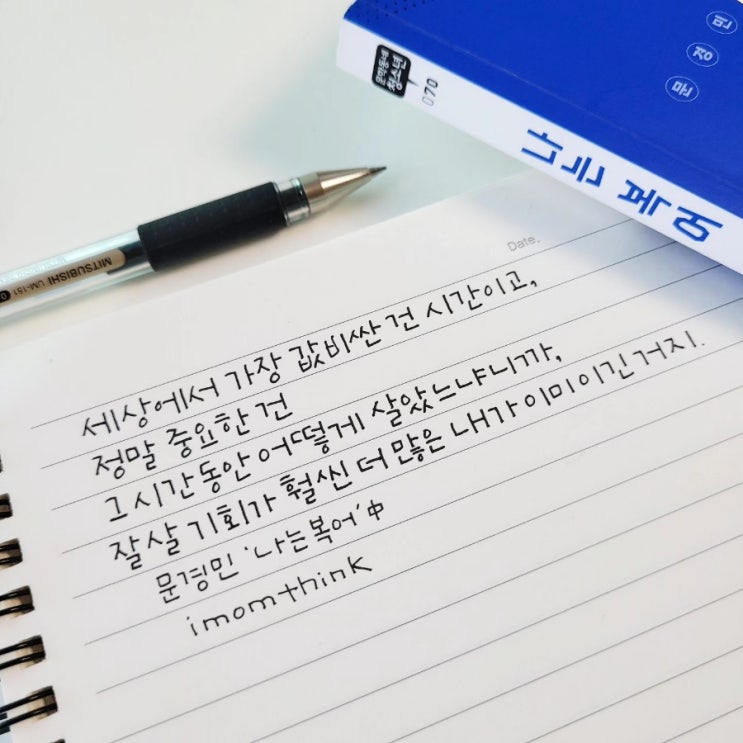 문학동네
청소년
070
나는 복어
문
경
민
MITSUBISHI UMI-151
Date.
세상에서 가장 값비싼 건 시간이고,
정말 중요한 건
그 시간동안 어떻게 살았느냐니까,
잘 살 기회가 훨씬 더 많은 내가 이미 이긴 거지.
문경민 '나는 복어' 中
imomthink